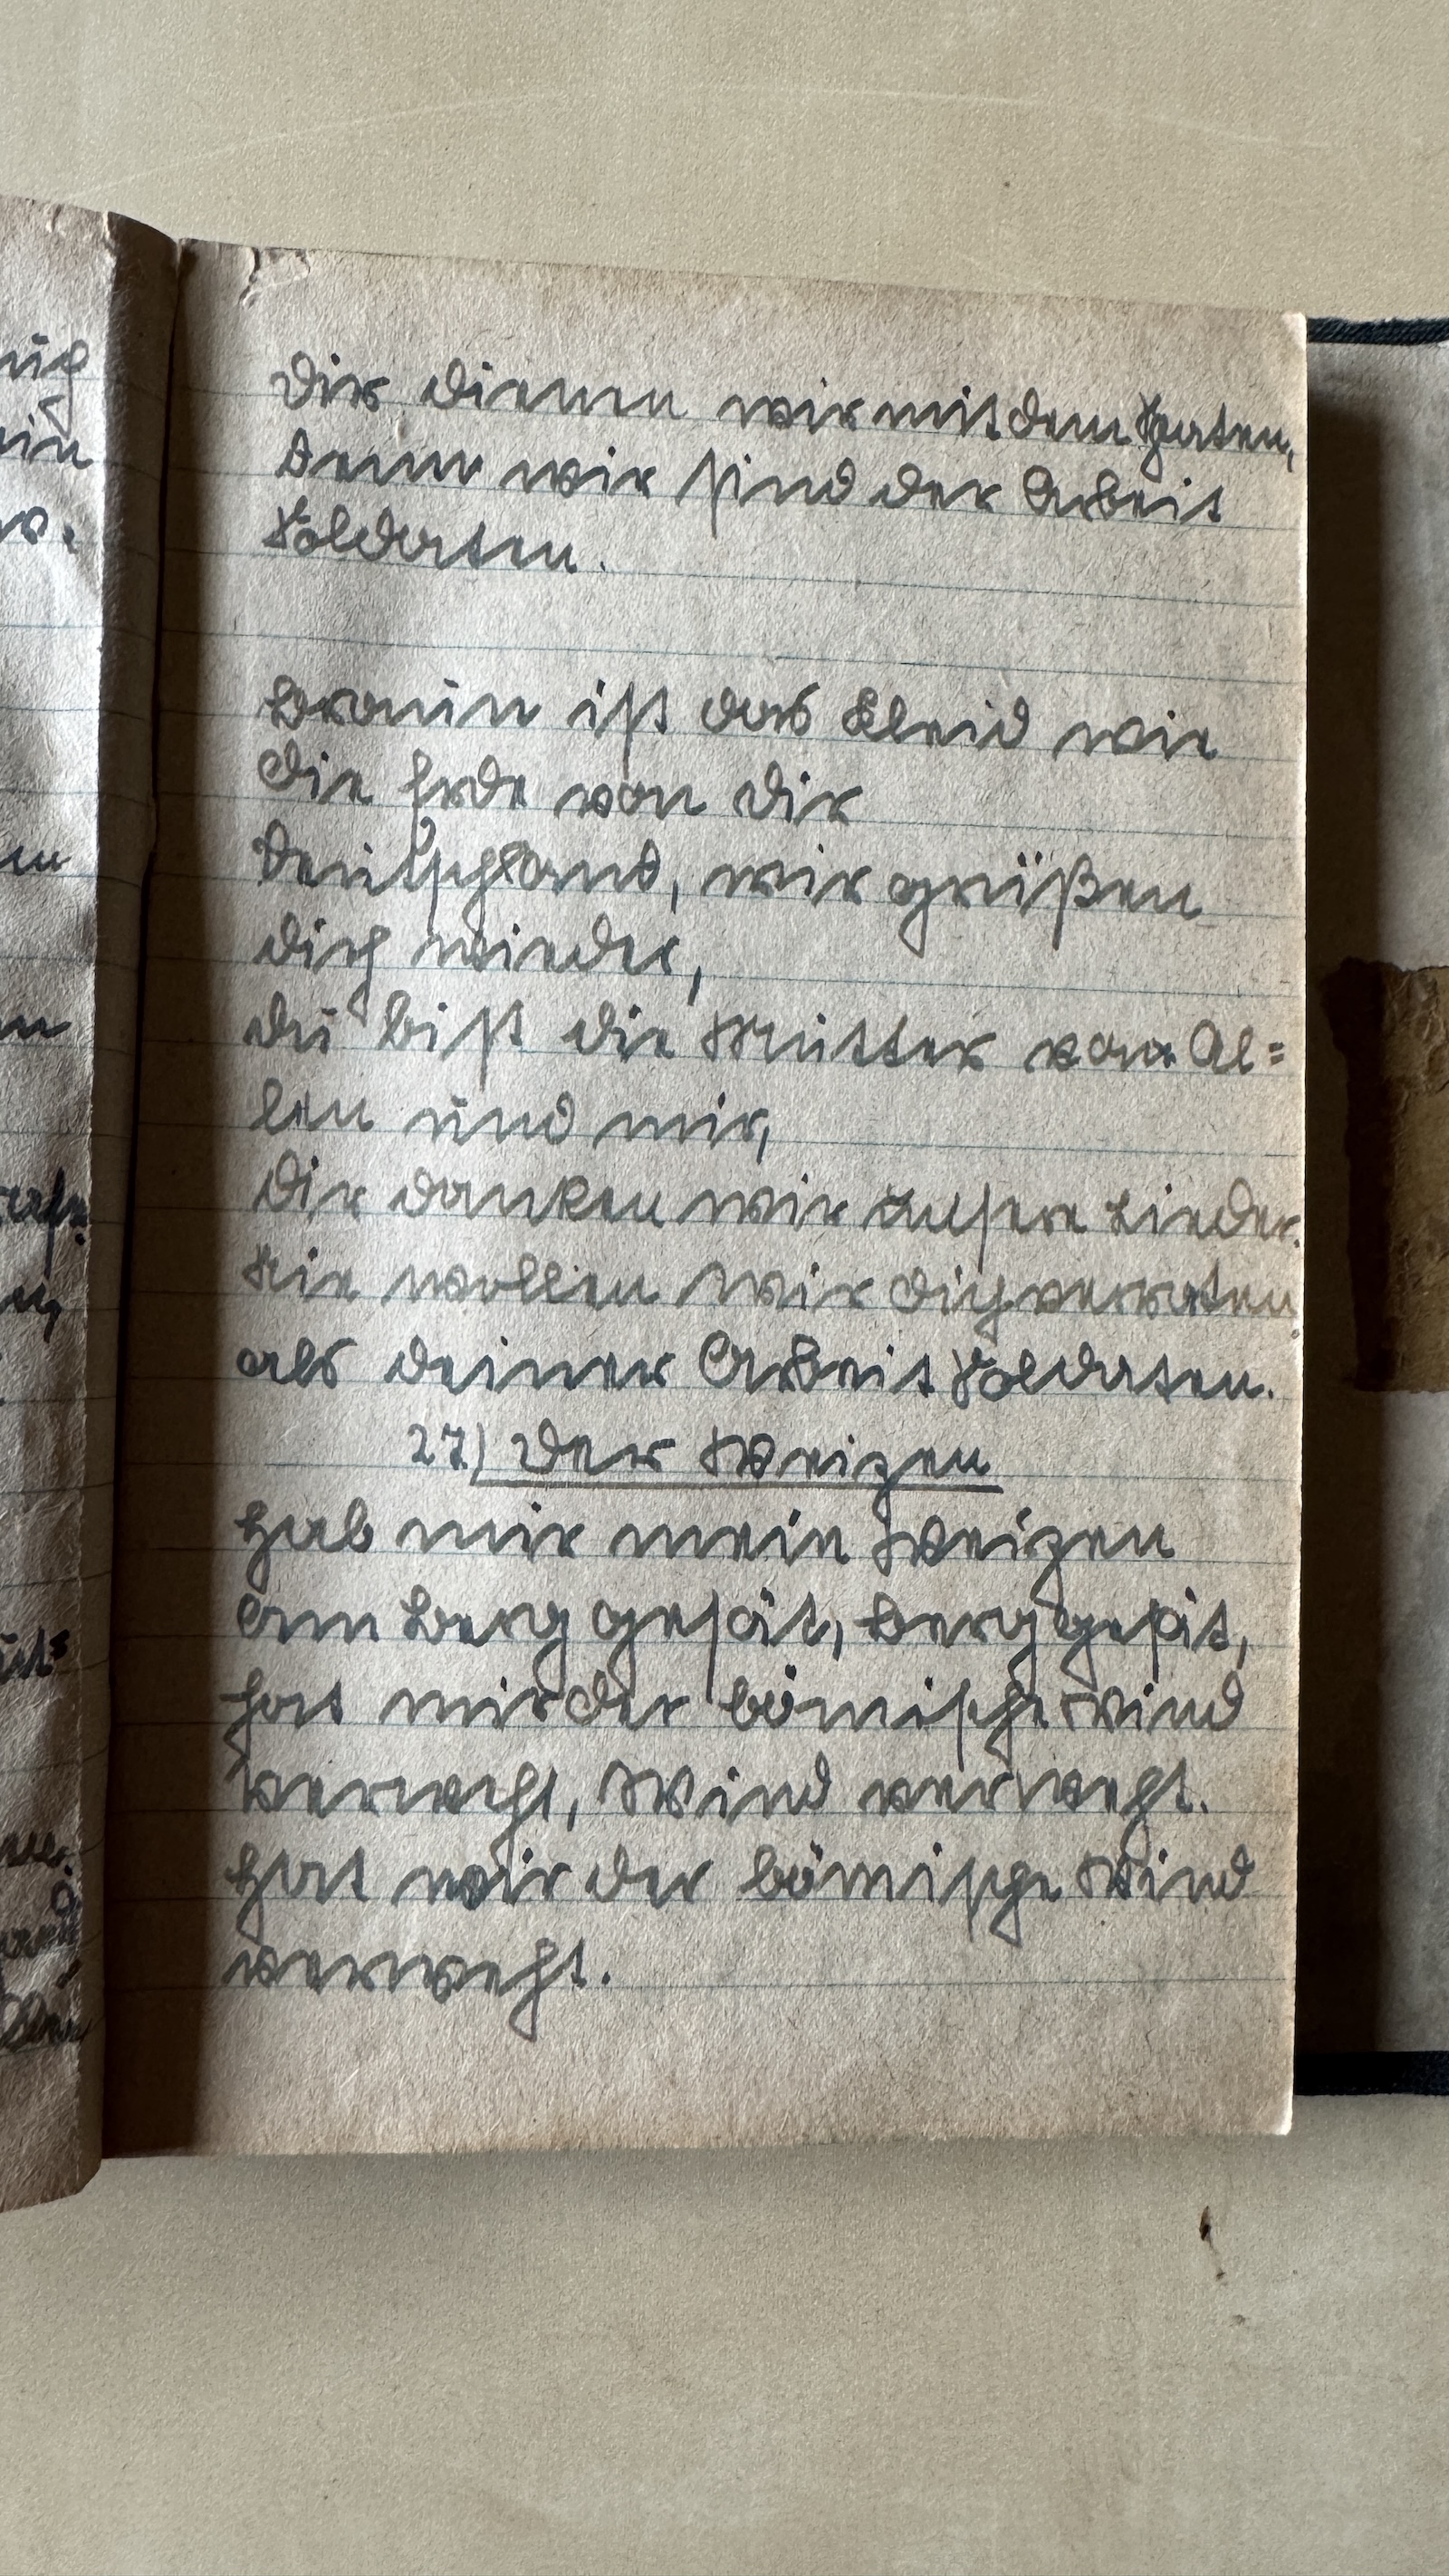 Dir dienen wir mit dem Spaten,
denn wir sind der Arbeit
Soldaten.
Braun ist das Kleid wie
die Erde von dir
Deutschland, wir grüßen
dich wieder,
du bist die Mutter von Al=
len und mir,
Dir danken wir unsere Lieder.
Nie wollen wir dich verraten
als deiner Arbeit Soldaten.
27) Der Weizen
Hab mir mein Weizen
am Berg gesät, Berg gesät,
hat mir der bömische Wind
verweht, Wind verweht.
Hat mir der bömische Wind
verweht.